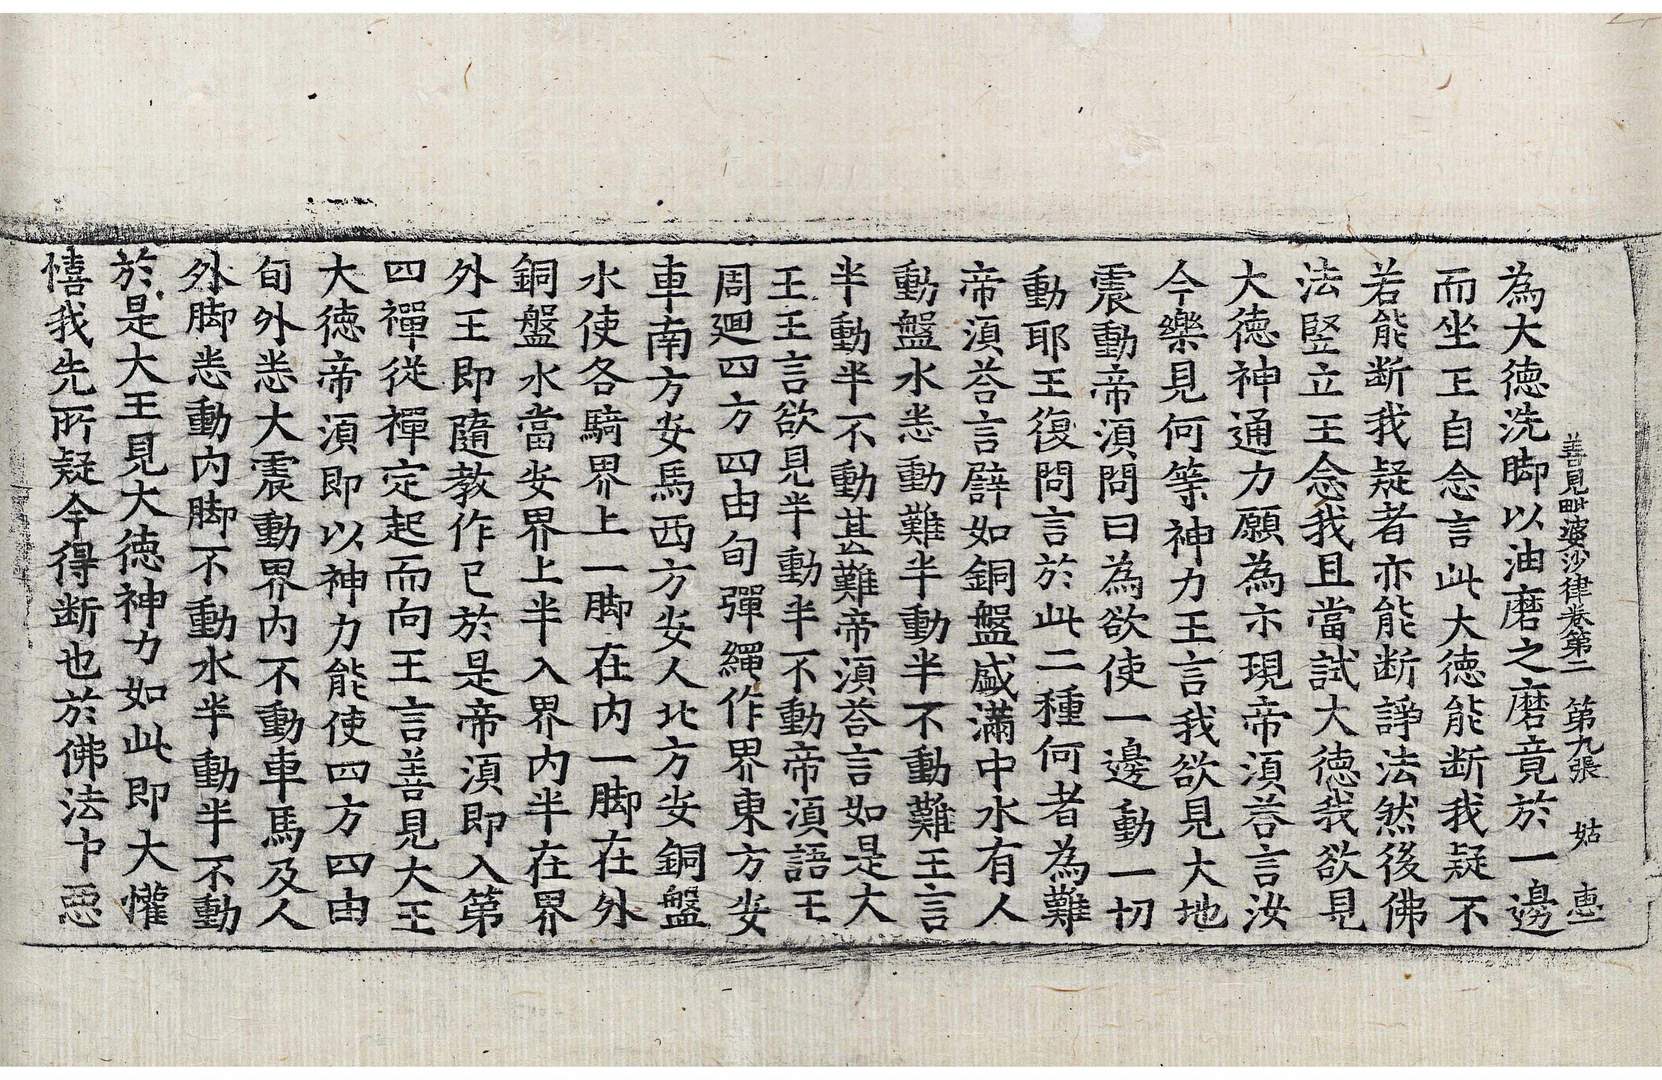 善見毗婆沙律卷第二　第九張　姑　惠一
為大德洗脚以油磨之磨竟於一邊
而坐王自念言此大德能断我疑不
若能断我疑者亦能断諍法然後佛
法竪立王念我且當試大德我欲見
大德神通力願為示現帝湏荅言汝
今樂見何等神力王言我欲見大地
震動帝湏問曰為欲使一邊動一切
動耶王復問言於此二種何者為難
帝湏荅言辟如銅盤盛滿中水有人
動盤水悉動難半動半不動難王言
半動半不動甚難帝湏荅言如是大
王王言欲見半動半不動帝湏語王
周廻四方四由旬彈繩作界東方安
車南方安馬西方安人北方安銅盤
水使各騎界上一脚在内一脚在外
銅盤水當安界上半入界内半在界
外王即隨教作已於是帝湏即入第
四禪從禪定起而向王言善見大王
大德帝湏即以神力能使四方四由
旬外悉大震動界内不動車馬及人
外脚悉動内脚不動水半動半不動
於是大王見大德神力如此即大懽
憘我先所疑今得断也於佛法中惡